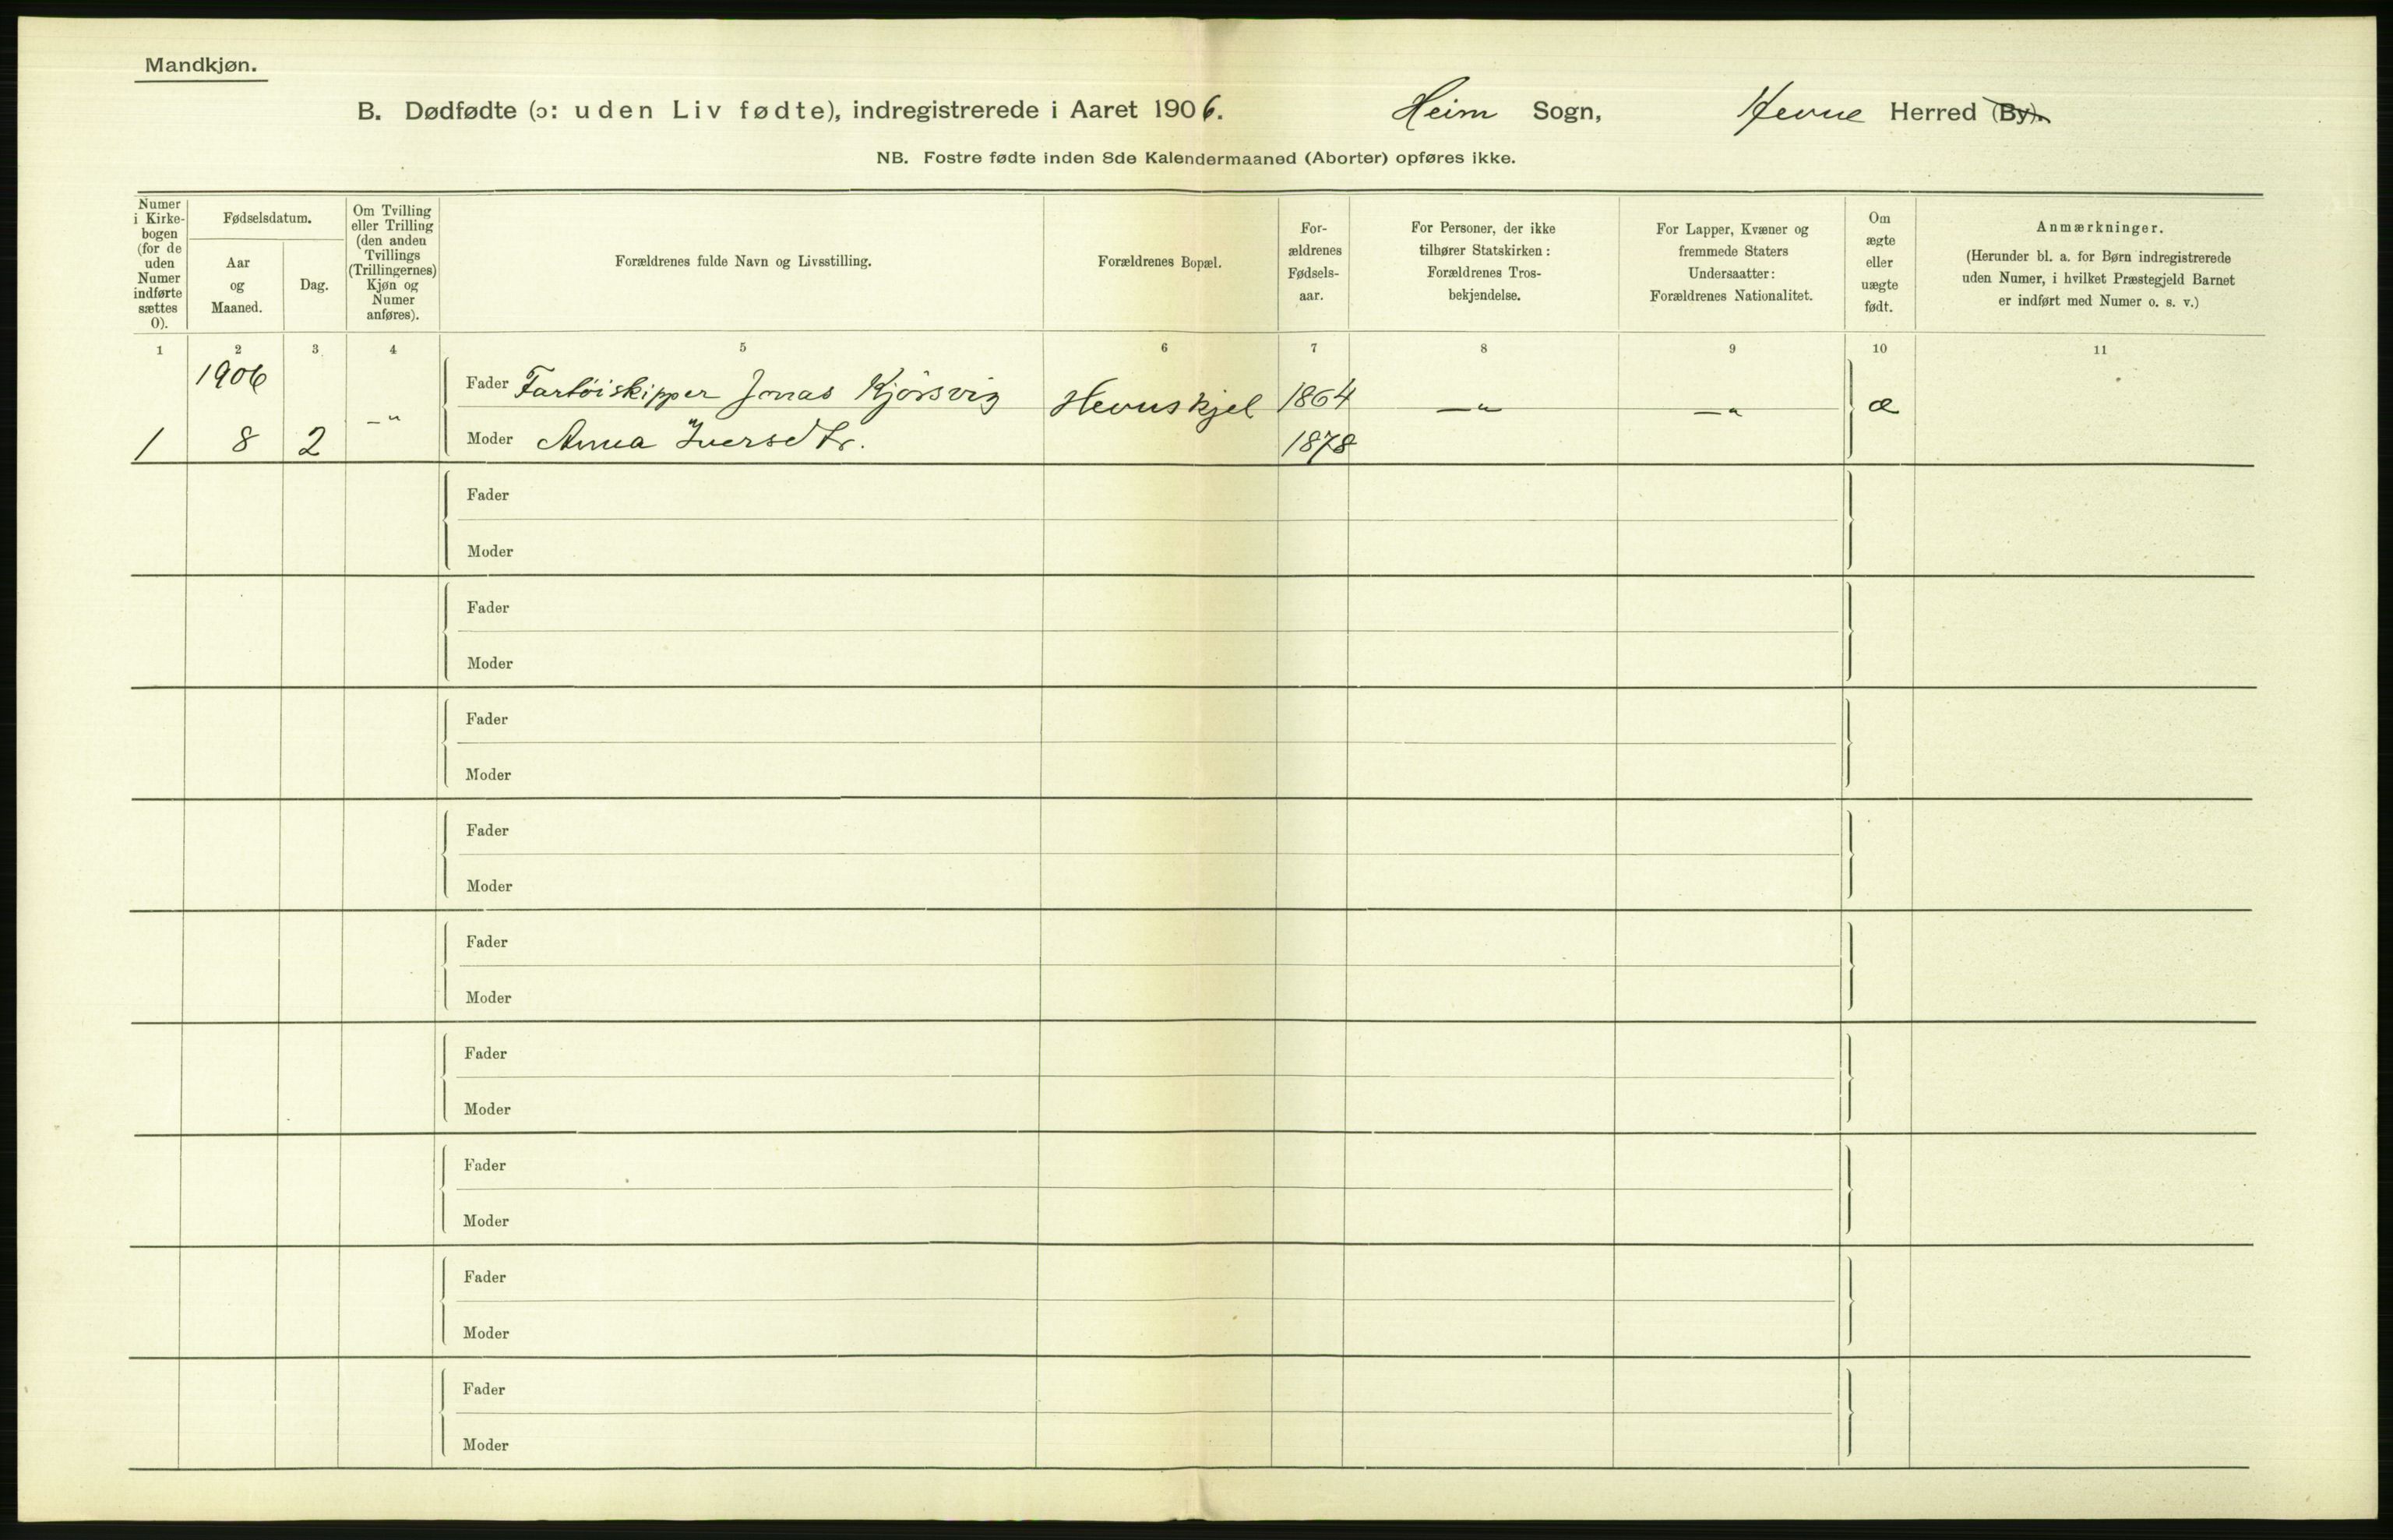 Mandkjøn.
B. Dødfødte (ɔ: uden Liv fødte), indregistrerede i Aaret 1906. Heim Sogn, Hevne Herred (By).
NB. Fostre fødte inden 8de Kalendermaaned (Aborter) opføres ikke.
Numer
i Kirke-
bogen
(for de
uden
Numer
indførte
sættes
0).
Fødselsdatum.
Aar
og
Maaned.
Dag.
Om Tvilling
eller Trilling
(den anden
Tvillings
(Trillingernes)
Kjøn og
Numer
anføres).
Forældrenes fulde Navn og Livsstilling.
Forældrenes Bopæl.
For-
ældrenes
Fødsels-
aar.
For Personer, der ikke
tilhører Statskirken:
Forældrenes Tros-
bekjendelse.
For Lapper, Kvæner og
fremmede Staters
Undersaatter:
Forældrenes Nationalitet.
Om
ægte
eller
uægte
født.
Anmærkninger.
(Herunder bl. a. for Børn indregistrerede
uden Numer, i hvilket Præstegjeld Barnet
er indført med Numer o. s. v.)
1 2 3 4 5 6 7 8 9 10 11
1906
Fader Fartöiskipper Jonas Kjörsvig Hevnskjel 1864 —„ —„ æ
—„
1 8 2 Moder Anna Iversdtr. 1878
Fader
Moder
Fader
Moder
Fader
Moder
Fader
Moder
Fader
Moder
Fader
Moder
Fader
Moder
Fader
Moder
Fader
Moder